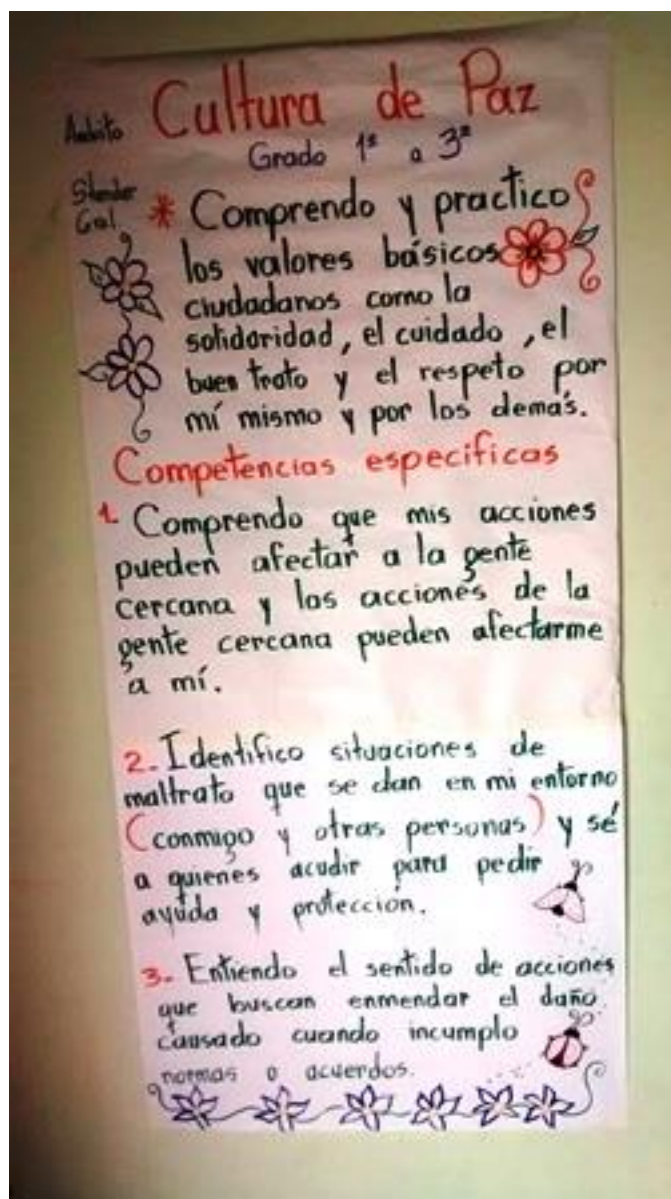 Ambito Cultura de Paz
Grado 1º a 3º
* Comprendo y practico
los valores básicos
ciudadanos como la
solidaridad, el cuidado, el
buen trato y el respeto por
mí mismo y por los demás.
Competencias especificas
1. Comprendo que mis acciones
pueden afectar a la gente
cercana y las acciones de la
gente cercana pueden afectarme
a mí.
2. Identifico situaciones de
maltrato que se dan en mi entorno
(conmigo y otras personas) y sé
a quienes acudir para pedir
ayuda y protección.
3. Entiendo el sentido de acciones
que buscan enmendar el daño
causado cuando incumplo
normas o acuerdos.